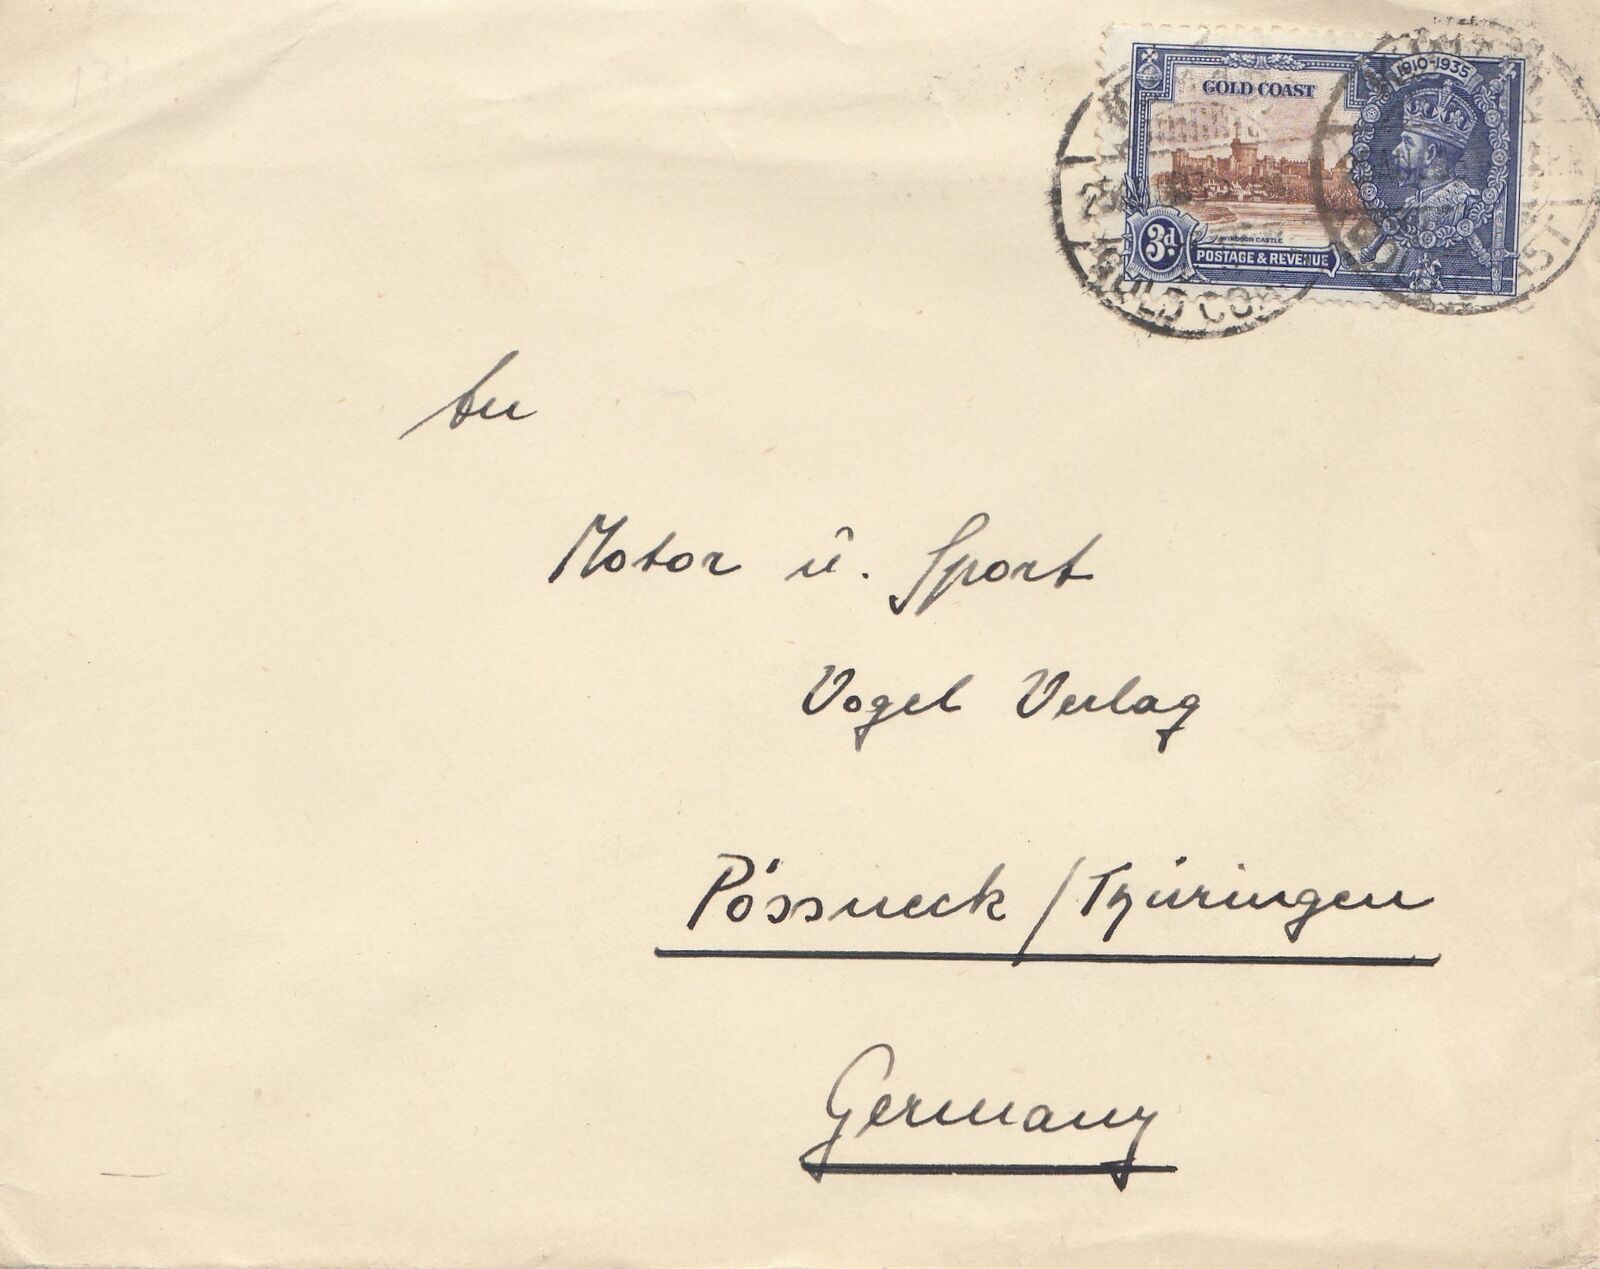 1910-1935
GOLD COAST
WINDSOR CASTLE
3d.
POSTAGE & REVENUE
GOLD COAST
An
Motor u. Sport
Vogel Verlag
Pössneck / Thüringen
Germany